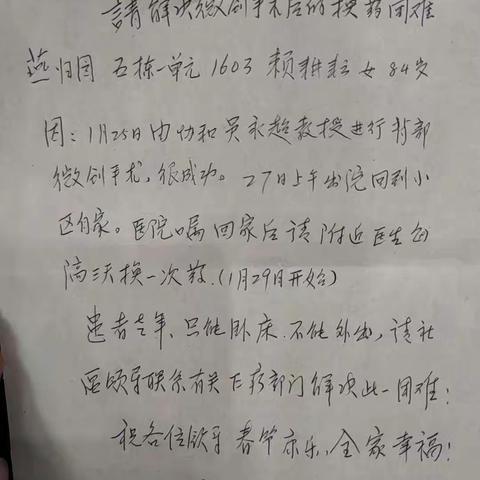 請解决微创手术后的换药困难
燕归园 五栋一单元 1603 赖 女 84岁
因：1月25日由协和吴永超教授进行背部
微创手术，很成功。27日上午出院回到小
区自家。医院嘱回家后请附近医生
隔三天换一次药.（1月29日开始）
患者年,只能卧床.不能外出,请社
区领导联系有关医疗部门解决此一困难!
祝各位领导春节快乐,全家幸福!